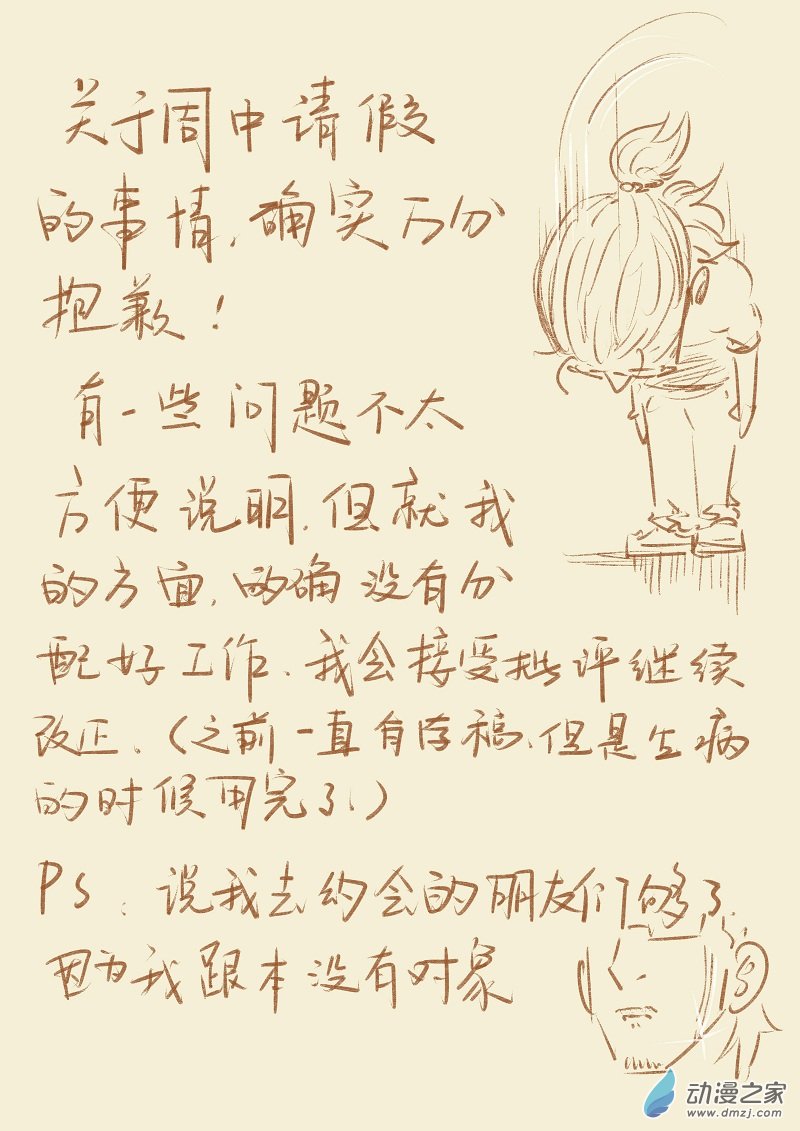 关于周中请假
的事情,确实万分
抱歉!
有一些问题不太
方便说明,但就我
的方面,的确没有分
配好工作、我会接受批评继续
改正、(之前一直有存稿、但是生病
的时候用完了、)
PS:说我去约会的朋友们够了
因为我跟本没有对象
动漫之家
www.dmzj.com